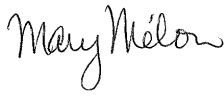 Mary Mélon